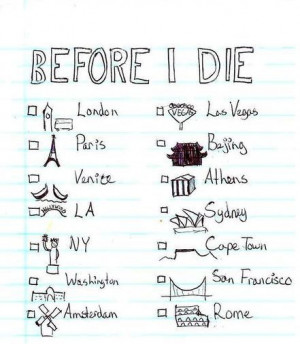 BEFORE I DIE
London
Paris
Venice
LA
NY
Washington
Amsterdam
Las Vegas
VEGAS
Bejing
Athens
Sydney
Cape Town
San Francisco
Rome